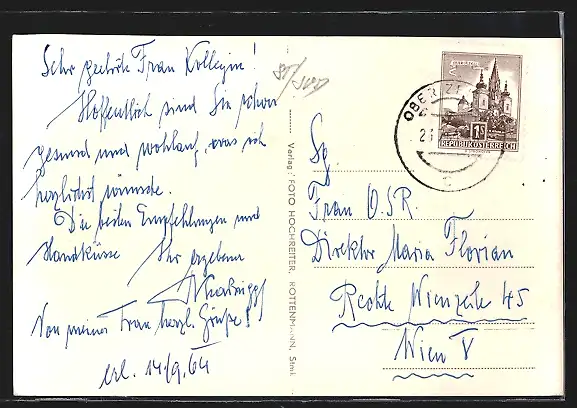 Sehr geehrte Frau Kollegin!
Hoffentlich sind Sie schon
gesund und wohlauf, was ich
herzlichst wünsche.
Die besten Empfehlungen und
Handküsse Ihr ergebener
Von meiner Frau herzl. Grüße!
erl. 14/9.64
Verlag: FOTO HOCHREITER, ROTTENMANN, Stmk.
REPUBLIK ÖSTERREICH
OBERZ
Sg.
Frau O.S.R.
Direktor Maria Florian
Rechte Wienzeile 45
Wien V